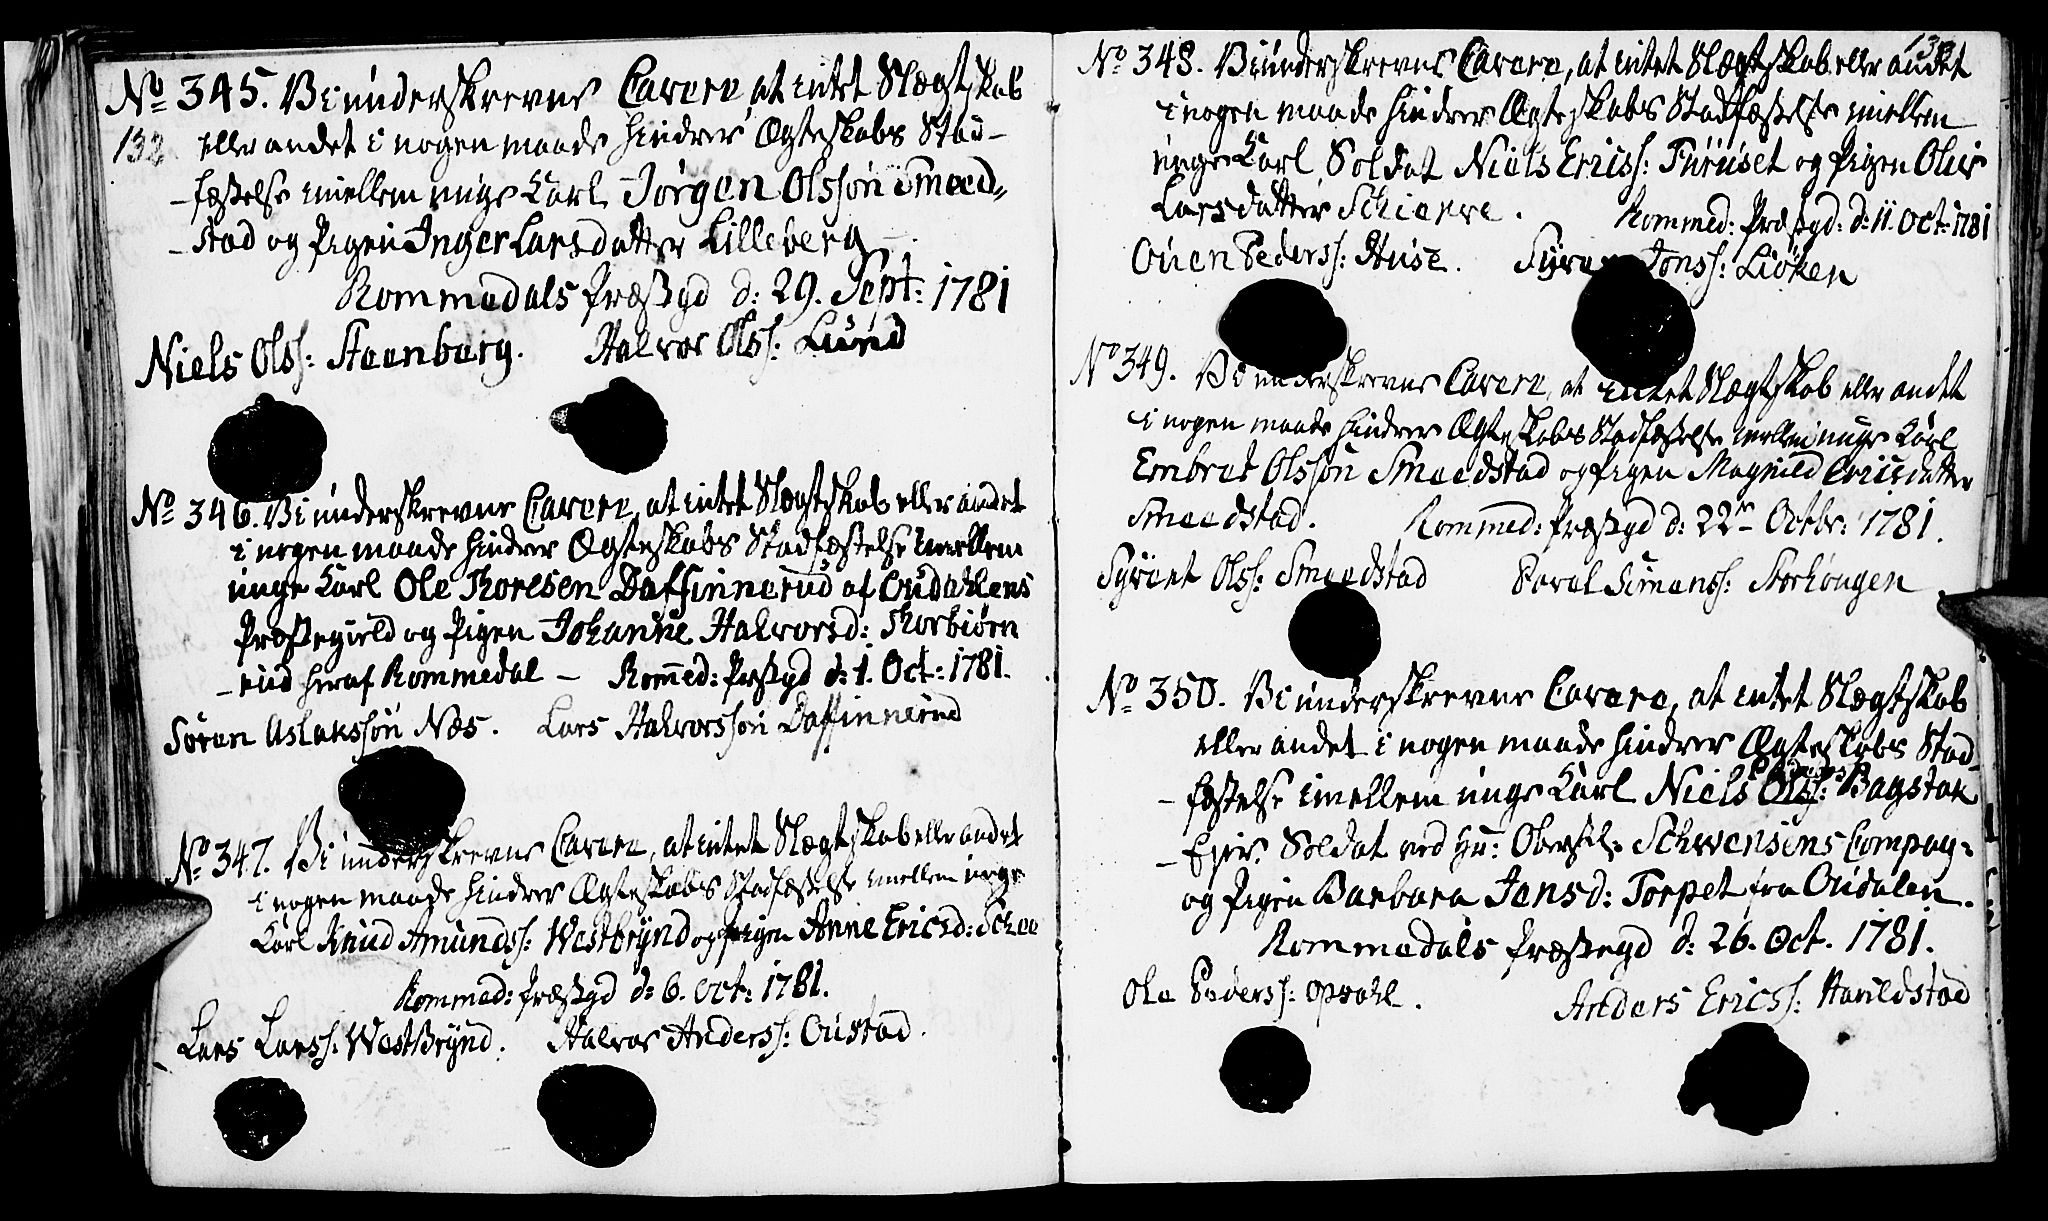 No 345. Vi underskrevne Cavere, at intet Slægtskab
132
eller andet i nogen maade hindrer Ægteskabs Stad-
-fæstelse imellem unge Karl Jørgen Olssøn Smeed-
-stad og Pigen Inger Larsdatter Lilleberg
Rommedals Præstgd d: 29. Sept: 1781
Niels Olss: Steenberg. Halvor Olss: Lund
No 346. Vi underskrevne Cavere, at intet Slægtskab eller andet
i nogen maade hindrer Ægteskabs Stadfæstelse imellem
unge Karl Ole Thoresen Daffinnerud af Oudahlens
Præstegield og Pigen Johanne Halvorsd: Thorbiørn
-rud heraf Rommedal - Rommed: Præstgd d: 1. Oct: 1781.
Søren Aslakssøn Næs. Lars Halvorssøn Daffinnerud
No 347. Vi underskrevne Cavere, at intet Slægtskab eller andet
i nogen maade hindrer Ægteskabs Stadfæstelse imellem unge
Karl Knud Amunds: Westbrÿnd og Pigen Anne Ericsd:
Rommed: Præstgd d: 6. Oct: 1781.
Lars Larss: Westbrÿnd. Halvor Anderss: Oustad.
No 348. Vi underskrevne Cavere, at intet Slægtskab eller andet
i nogen maade hindrer Ægteskabs Stadfæstelse imellem
unge Karl Soldat Niels Ericss: Furuset og Pigen Oliv
Larsdatter Schierve. Rommed: Præstgd: d: 11. Oct: 1781
Ouen Pederss: Huse. Sÿver Jonss: Liøken
No 349. Vi underskrevne Cavere, at intet Slægtskab eller andet
i nogen maade hindrer Ægteskabs Stadfæstelse imellem unge Karl
Embret Olssøn Smeedstad og Pigen Magnild Ericsdatter
Smeedstad. Rommed: Præstgd d: 22de Octbr: 1781.
Sÿvert Olss: Smeedstad Povel Simenss: Storhougen
No 350. Vi underskrevne Cavere, at intet Slægtskab
eller andet i nogen maade hindrer Ægteskabs Stad-
-fæstelse imellem unge Karl Niels Olss: Bagstak
Soldat ved Hr: Oberstl: Schwensens Compag:
og Pigen Barbara Jensd: Torpet fra Oudalen.
Rommedals Præstegd d: 26. Oct. 1781.
Ole Pederss: Opsahl. Anders Ericss: Harildstad